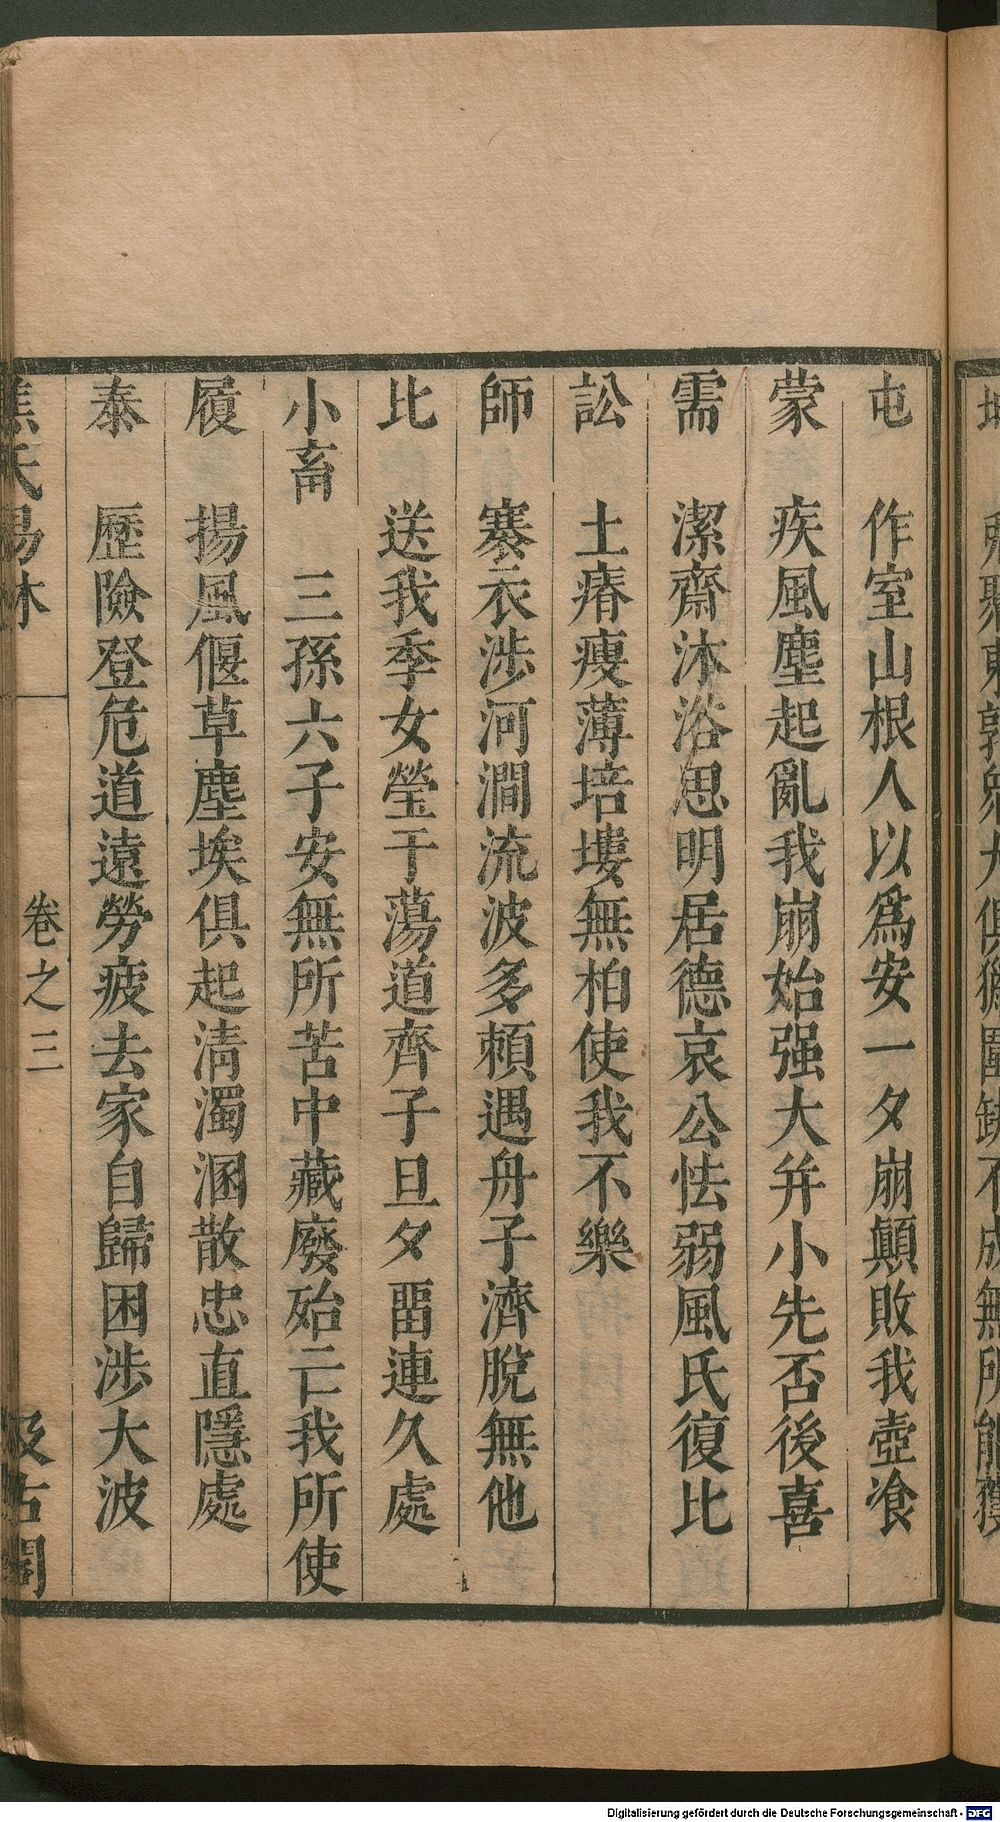 屯　作室山根人以爲安一夕崩顛敗我壺飡
蒙　疾風塵起亂我崩始强大并小先否後喜
需　潔齋沐浴思明居德哀公怯弱風氏復比
訟　土瘠瘦薄培塿無柏使我不樂
師　褰衣涉河澗流波多賴遇舟子濟脫無他
比　送我季女瑩干蕩道齊子旦夕畱連久處
小畜　三孫六子安無所苦中藏廢殆亡我所使
履　揚風偃草塵埃俱起清濁溷散忠直隱處
泰　歷險登危道遠勞疲去家自歸困涉大波
焦氏易林　卷之三　汲古閣
Digitalisierung gefördert durch die Deutsche Forschungsgemeinschaft - DFG